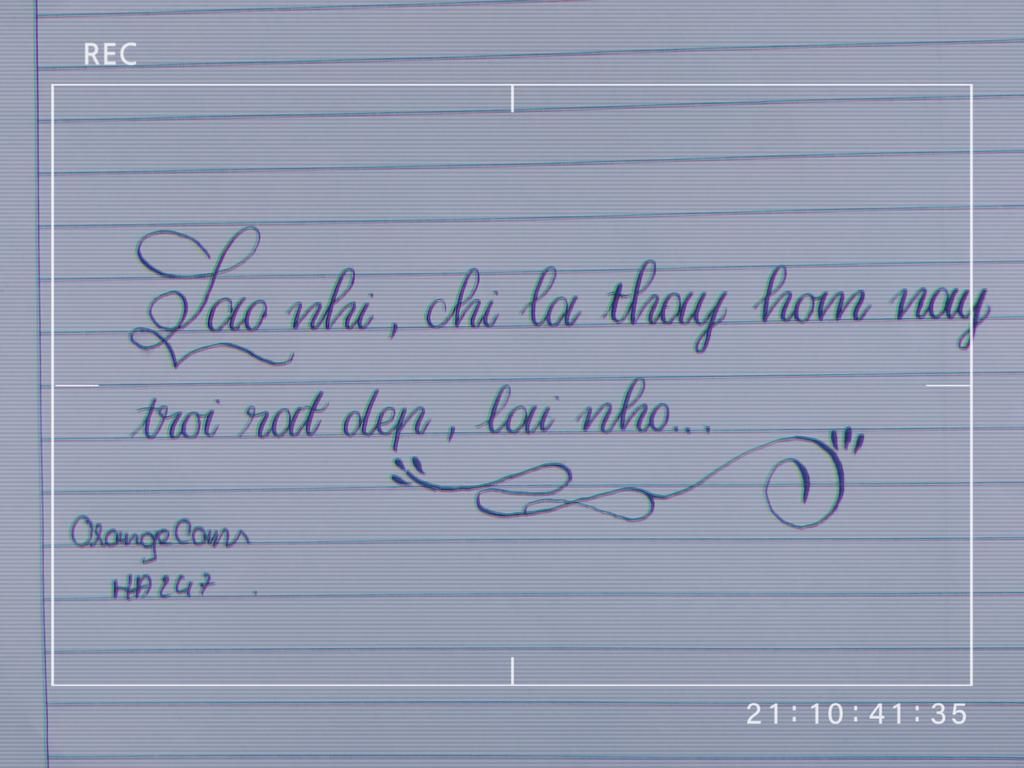 REC
Sao nhi, chi la thay hom nay
troi rat dep, lai nho...
OrangeCam
HA247
21:10:41:35